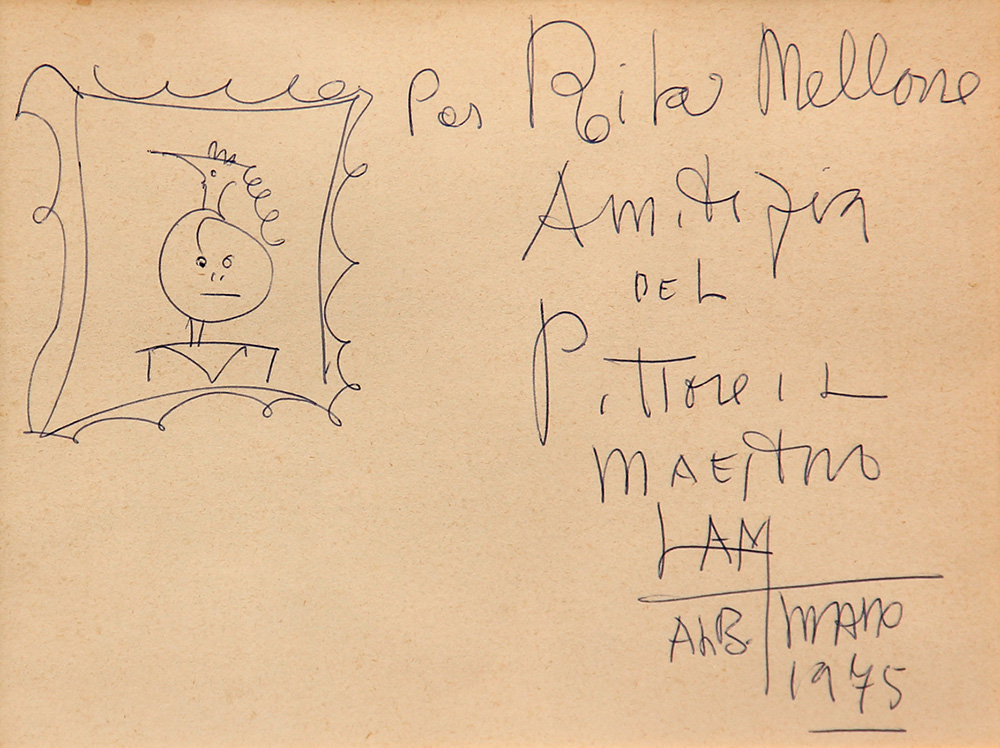 Por Rita Mellone
Amitizia
DEL
Pittore IL
MAEStRO
LAM
Alb.
1975